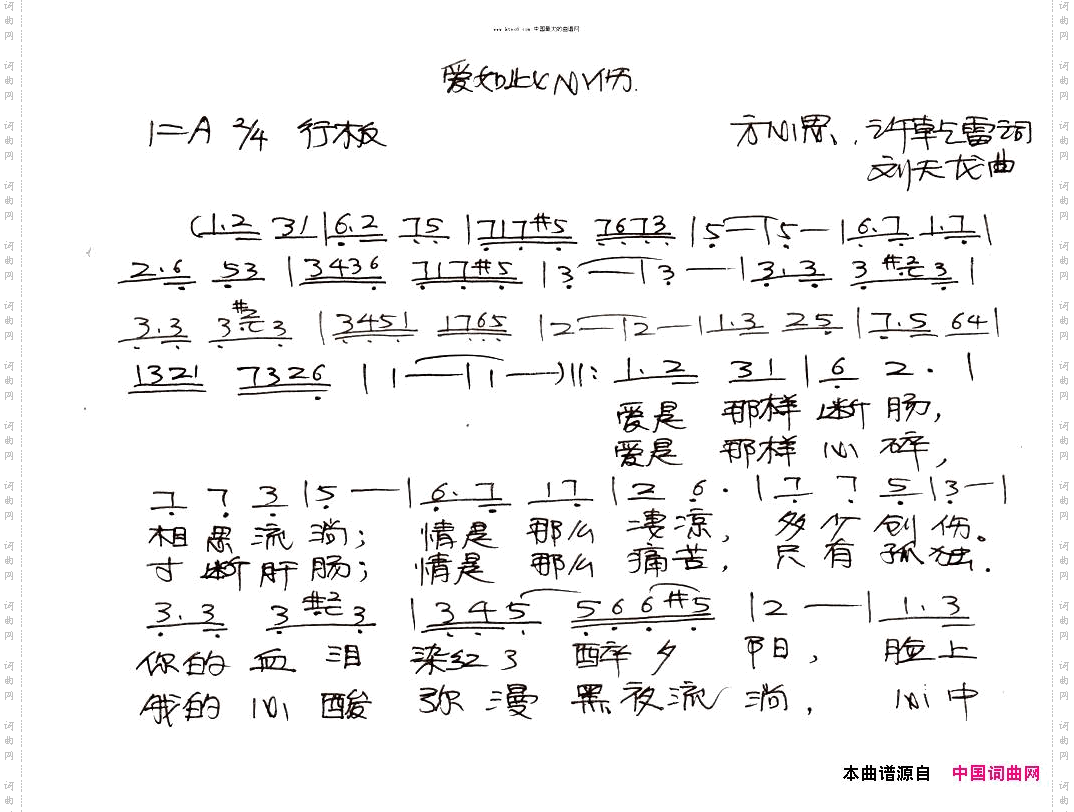 www.ktvc8.com 中国最大的曲谱网
爱如此心伤.
1=A 2/4 行板
方心思、许乾雷词
刘天龙曲
(1.2 31|6.2 75|717#5 7673|5—|5—|6.7 1.7|
2.6 53|3436 717#5|3—|3—|3.3 3#23|
3.3 3#23|3451 1765|2—|2—|1.3 25|7.5 64|
1321 7326|1—|1—)||: 1.2 31|6 2.|
爱是 那样 断 肠,
爱是 那样 心 碎,
7 7 3|5—|6.7 17|2 6.|7 7 5|3—|
相 思 流 淌; 情是 那么 凄凉, 多少 创 伤。
寸 断 肝 肠; 情是 那么 痛苦, 只有 孤独.
3.3 3#23|345 566#5|2—|1.3
你的 血 泪 染红了 醉 夕 阳, 脸上
我的 心 酸 弥漫 黑夜流 淌, 心中
本曲谱源自 中国词曲网
词曲网